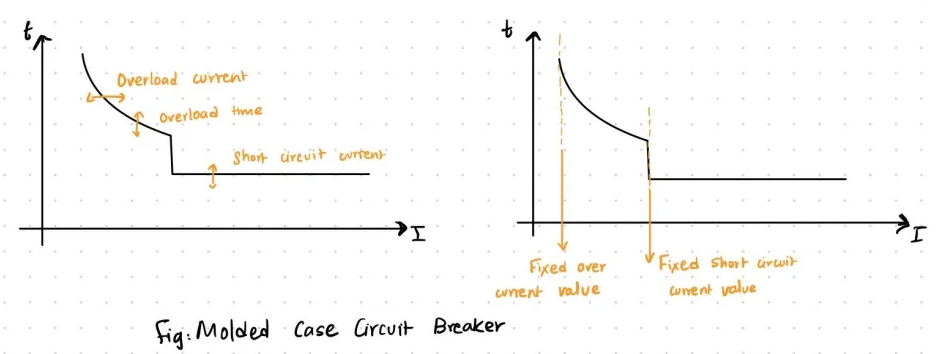 t
Overload current
Overload time
Short circuit current
I
t
I
Fixed over
current value
Fixed short circuit
current value
Fig: Molded Case Circuit Breaker